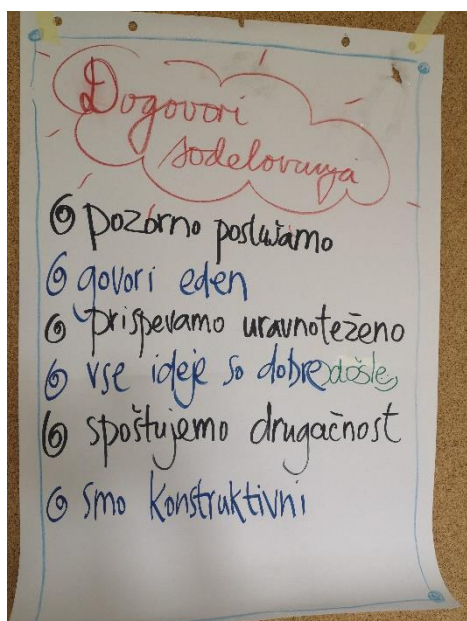 Dogovori
sodelovanja
pozorno poslušamo
govori eden
prispevamo uravnoteženo
vse ideje so dobredošle
spoštujemo drugačnost
smo konstruktivni